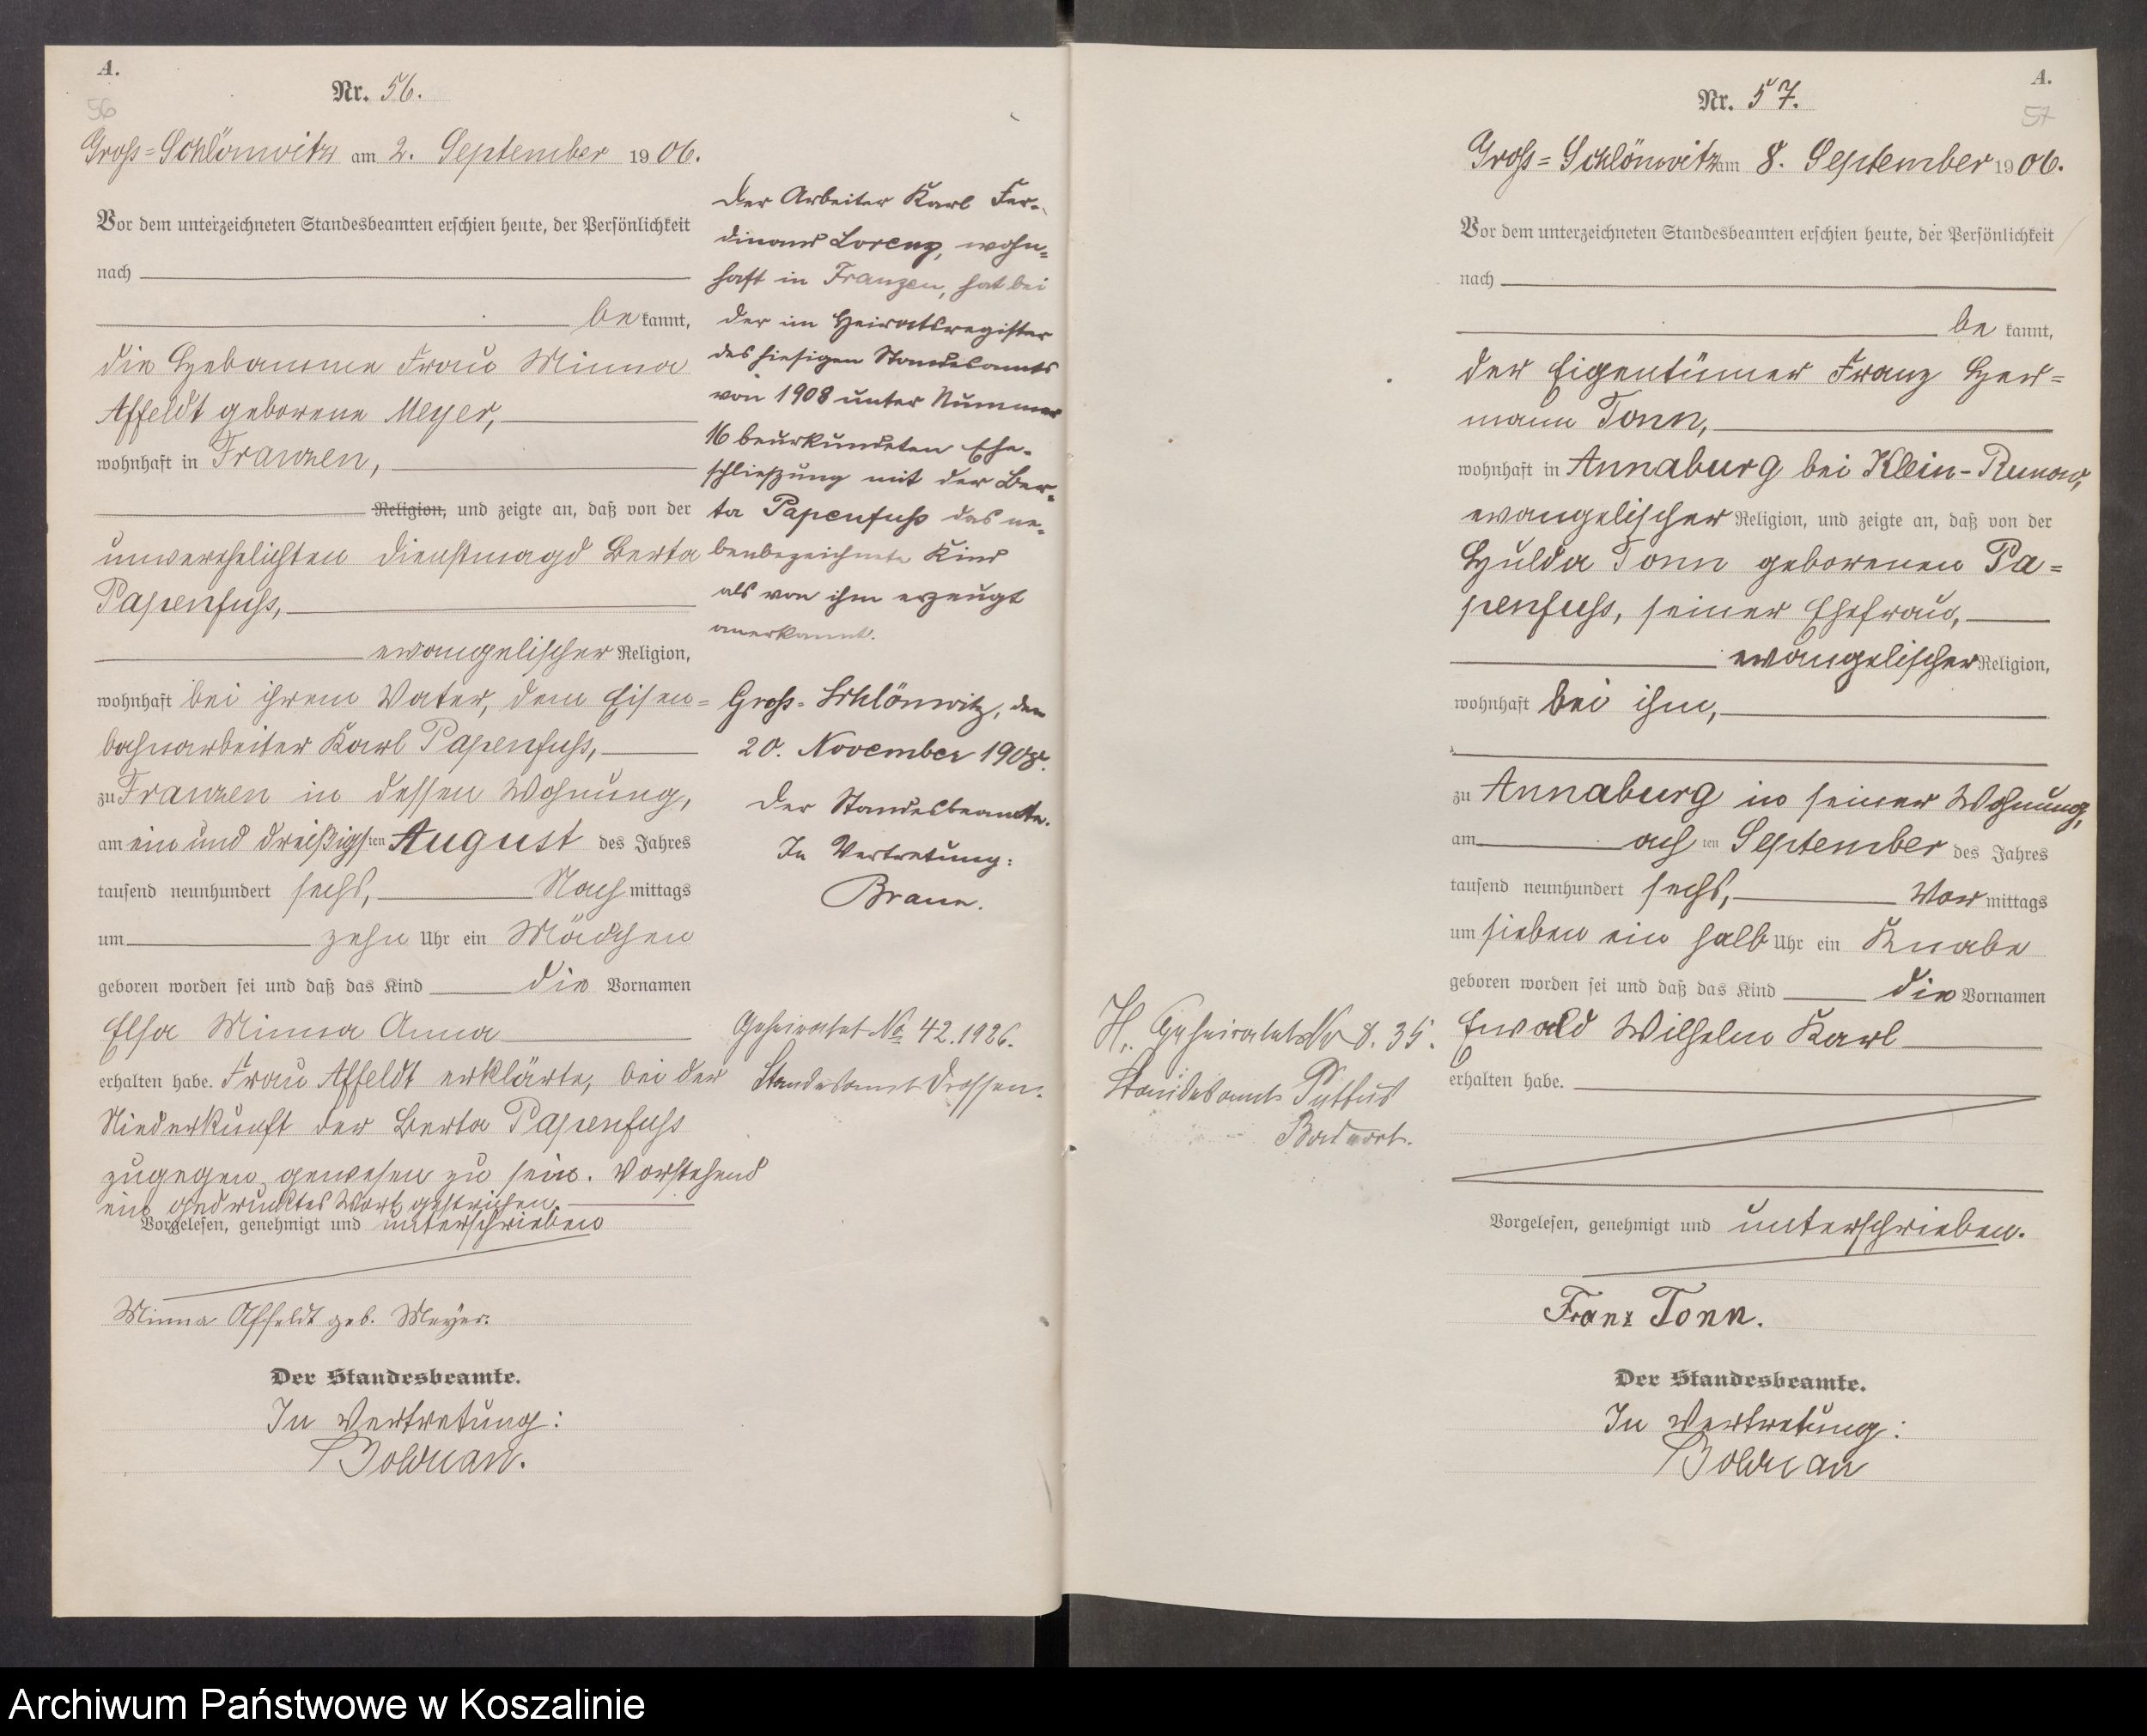 A.
Nr. 56.
56
Gross=Schlönwitz am 2. September 1906.
Vor dem unterzeichneten Standesbeamten erschien heute, der Persönlichkeit
nach
be kannt,
die Hebamme Frau Minna
Affeldt geborene Meyer,
wohnhaft in Franzen,
Religion, und zeigte an, daß von der
unverehelichten Dienstmagd Berta
Papenfuss,
evangelischer Religion,
wohnhaft bei ihrem Vater, dem Eisen=
bahnarbeiter Karl Papenfuss,
zu Franzen in dessen Wohnung,
am ein und dreißigsten August des Jahres
tausend neunhundert sechs, Nach mittags
um zehn Uhr ein Mädchen
geboren worden sei und daß das Kind die Vornamen
Elsa Minna Anna
erhalten habe. Frau Affeldt erklärte, bei der
Niederkunft der Berta Papenfuss
zugegen gewesen zu sein. Vorstehend
ein gedrucktes Wort gestrichen.
Vorgelesen, genehmigt und unterschrieben
Minna Affeldt geb. Meyer.
Der Standesbeamte.
In Vertretung:
Bolduan.
Der Arbeiter Karl Fer-
dinand Lorenz, wohn=
haft in Franzen, hat bei
der im Heiratsregister
des hiesigen Standesamts
von 1908 unter Nummer
16 beurkundeten Ehe-
schließung mit der Ber-
ta Papenfuss das ne-
benbezeichnete Kind
als von ihm erzeugt
anerkannt.
Gross-Schlönwitz, den
20. November 1908.
Der Standesbeamte.
In Vertretung:
Braun.
Geheiratet No 42.1926.
Standesamt Drossen.
A.
Nr. 57.
57
Gross=Schlönwitz am 8. September 1906.
Vor dem unterzeichneten Standesbeamten erschien heute, der Persönlichkeit
nach
be kannt,
der Eigentümer Franz Her=
mann Tonn,
wohnhaft in Annaburg bei Klein-Runow,
evangelischer Religion, und zeigte an, daß von der
Hulda Tonn geborenen Pa=
penfuss, seiner Ehefrau,
evangelischer Religion,
wohnhaft bei ihm,
zu Annaburg in seiner Wohnung,
am ach ten September des Jahres
tausend neunhundert sechs, Vor mittags
um sieben ein halb Uhr ein Knabe
geboren worden sei und daß das Kind die Vornamen
Ewald Wilhelm Karl
erhalten habe.
Vorgelesen, genehmigt und unterschrieben.
Franz Tonn.
Der Standesbeamte.
In Vertretung:
Bolduan
H. Geheiratet Nr 8. 35.
Standesamt
Archiwum Państwowe w Koszalinie